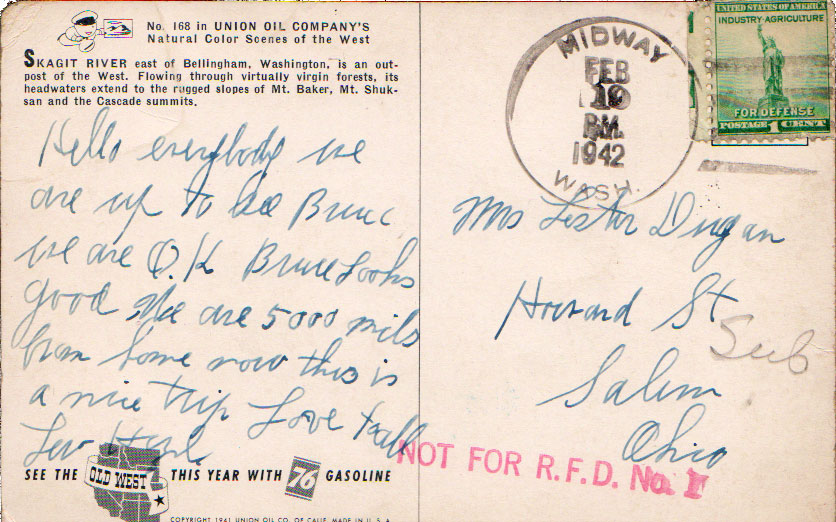 No. 168 in UNION OIL COMPANY'S
Natural Color Scenes of the West
SKAGIT RIVER east of Bellingham, Washington, is an out-
post of the West. Flowing through virtually virgin forests, its
headwaters extend to the rugged slopes of Mt. Baker, Mt. Shuk-
san and the Cascade summits.
Hello everybody we
are up to see Bruce
we are O.K Bruce Looks
good We are 5000 mils
from home now this is
a nice trip Love to all
SEE THE OLD WEST THIS YEAR WITH 76 GASOLINE
COPYRIGHT 1941 UNION OIL CO. OF CALIF. MADE IN U.S.A.
MIDWAY
FEB
19
P.M.
1942
WASH.
UNITED STATES OF AMERICA
INDUSTRY-AGRICULTURE
FOR DEFENSE
POSTAGE 1 CENT
Mrs Lester Dugan
Howard St
Sub
Salem
Ohio
NOT FOR R.F.D. No. 1